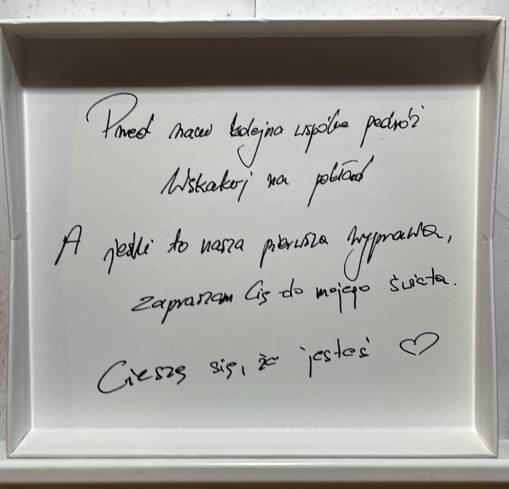 Przed nami kolejna wspólna podróż
Wskakuj na pokład
A jeśli to nasza pierwsza wyprawa,
zapraszam Cię do mojego świata.
Cieszę się, że jesteś ♡